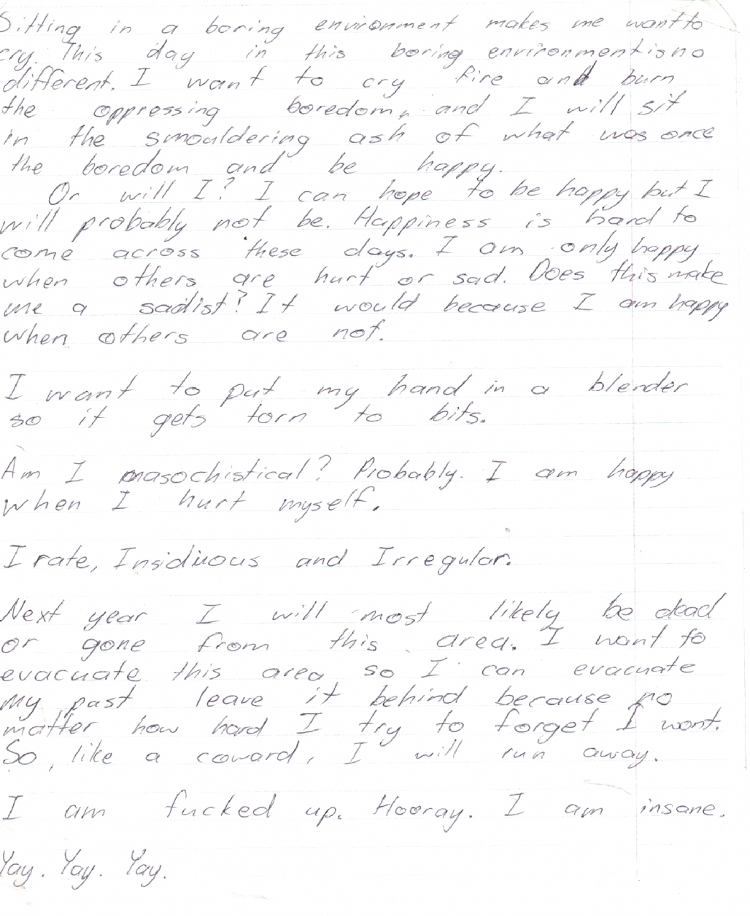 Sitting in a boring environment makes me want to
cry. This day in this boring environment is no
different. I want to cry fire and burn
the oppressing boredom, and I will sit
in the smouldering ash of what was once
the boredom and be happy.
Or will I? I can hope to be happy but I
will probably not be. Happiness is hard to
come across these days. I am only happy
when others are hurt or sad. Does this make
me a sadist? It would because I am happy
when others are not.
I want to put my hand in a blender
so it gets torn to bits.
Am I masochistical? Probably. I am happy
when I hurt myself.
I rate, Insiduous and Irregular.
Next year I will most likely be dead
or gone from this area. I want to
evacuate this area so I can evacuate
my past leave it behind because no
matter how hard I try to forget I wont.
So, like a coward, I will run away.
I am fucked up. Hooray. I am insane.
Yay. Yay. Yay.